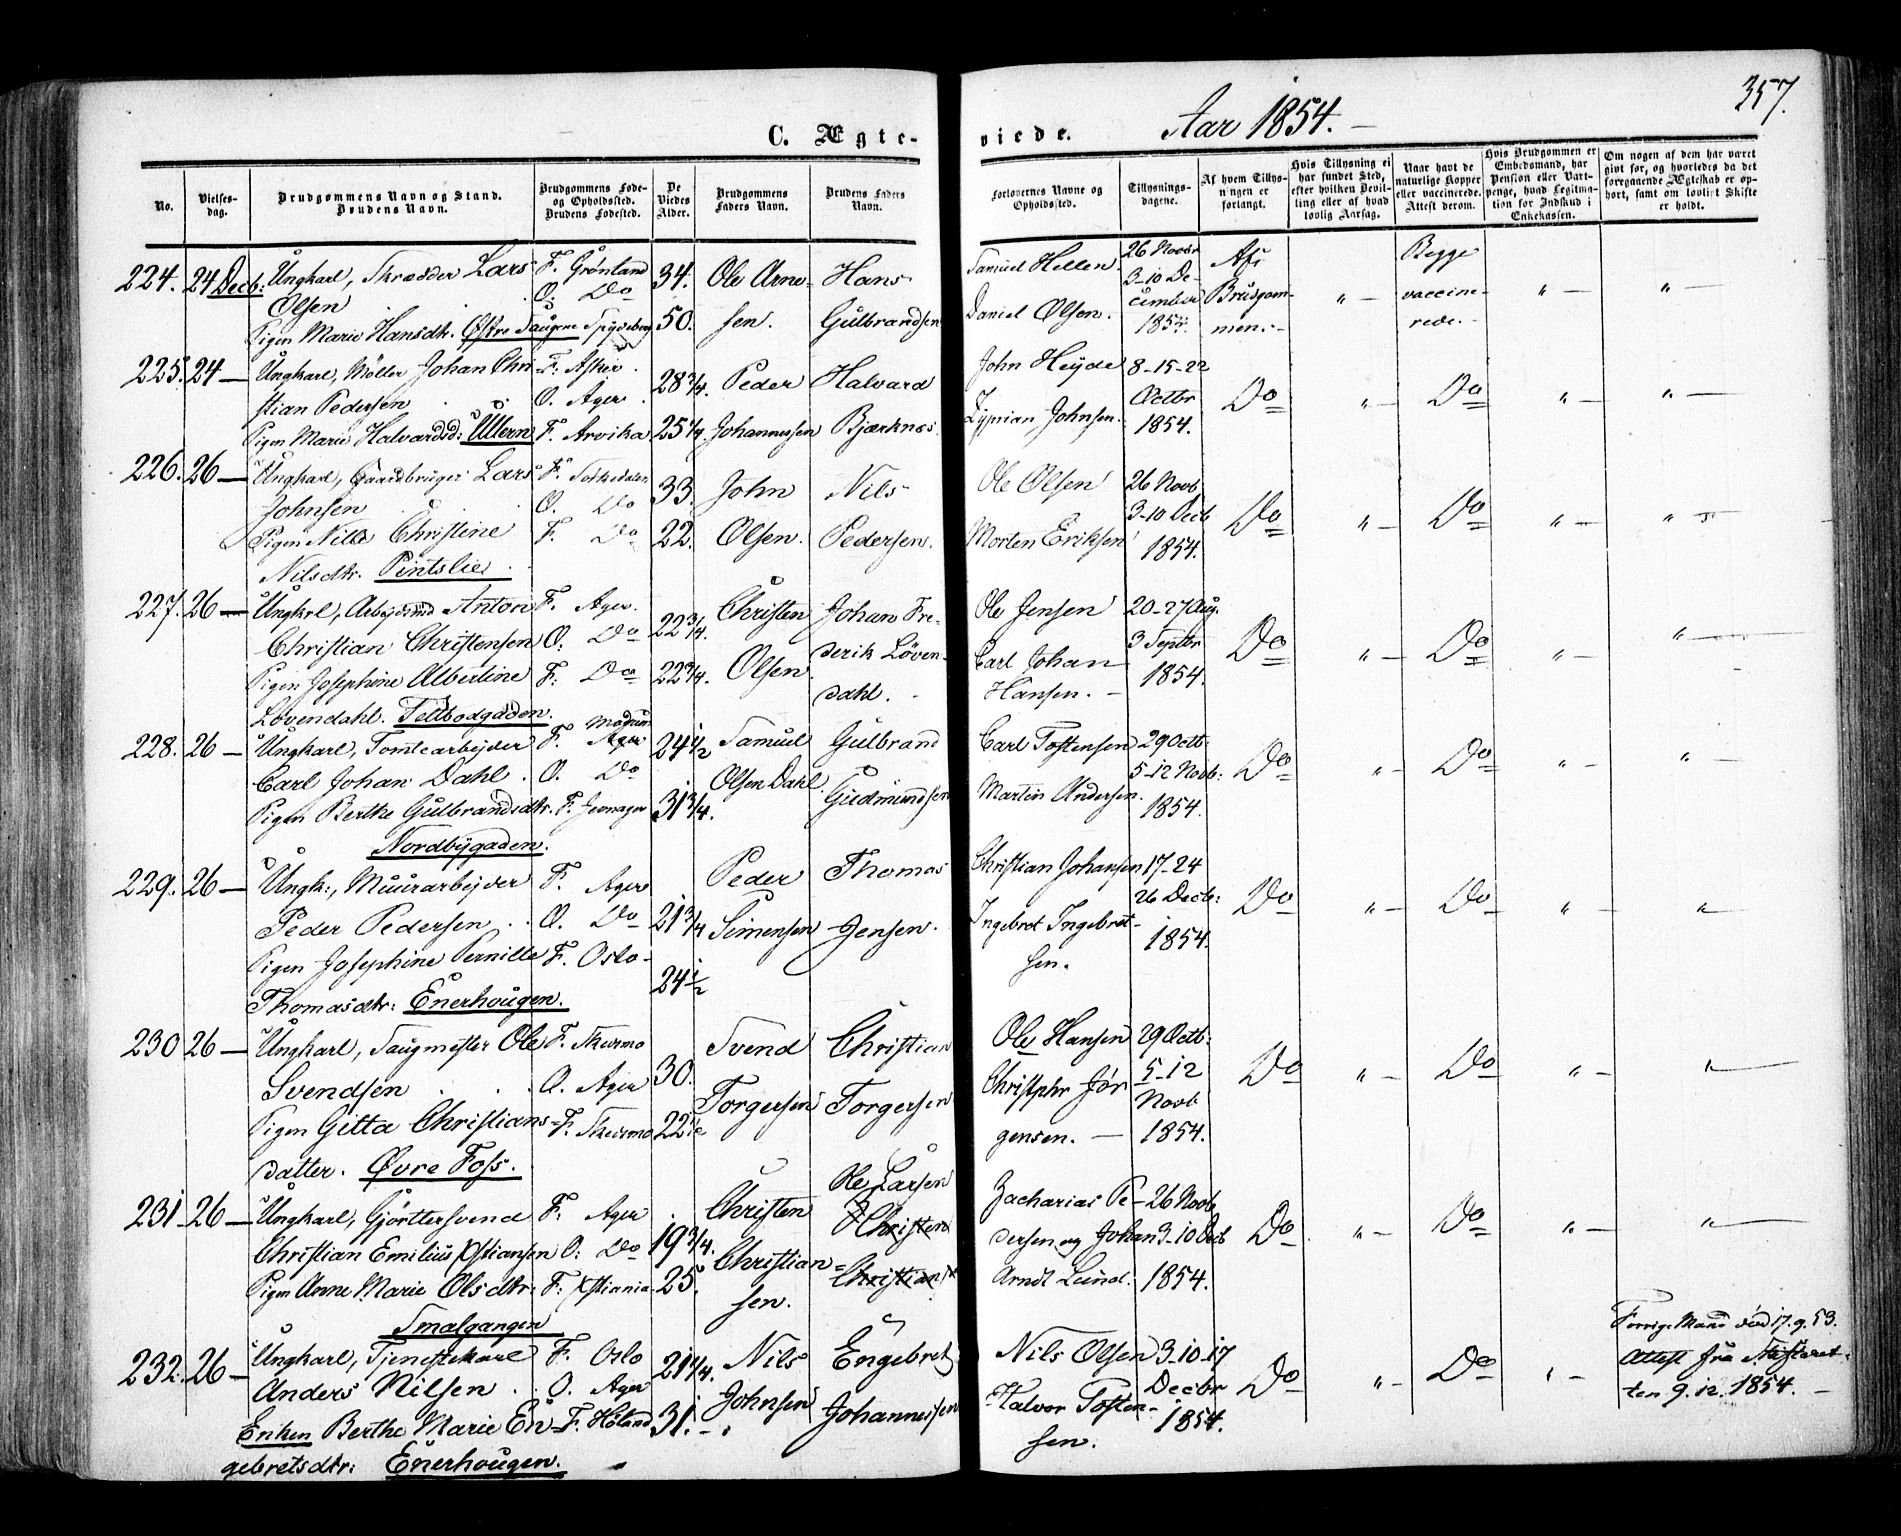 357.
C. Ægte-
viede.
Aar 1854. —
No.
Vielses-
dag.
Brudgommens Navn og Stand.
Brudens Navn.
Brudgommens Føde-
og Opholdssted.
Brudens Fødested.
De
Viedes
Alder.
Brudgommens
Faders Navn.
Brudens Faders
Navn.
Forlovernes Navne og
Opholdssted.
Tillysnings-
dagene.
Af hvem Tillys-
ningen er
forlangt.
Hvis Tillysning ei
har fundet Sted,
efter hvilken Bevil-
ling eller af hvad
lovlig Aarsag.
Naar havt de
naturlige Kopper
eller vaccinerede.
Attest derom.
Hvis Brudgommen er
Embedsmand, har
Pension eller Vart-
penge, hvad Legitima-
tion for Indskud i
Enkekassen.
Om nogen af dem har været
gift før, og hvorledes da det
foregaaende Ægteskab er op-
hørt, samt om lovligt Skifte
er holdt.
224. 24 Decb: Ungkarl, Skrædder Lars F. Grønland 34. Ole Arne- Hans Samuel Hellen. 26 Novbr Af Begge
Olsen O. Do sen. Gulbrandsen Daniel Olsen. 3-10 De- Brudgom- " — vaccine- " — " —
Pigen Marie Hansdtr. Østre Saugene Spydeberg 50. cember 1854. men. rede.
225. 24 — Ungkarl, Møller Johan Chri- F. Asker 28 3/4. Peder Halvard John Heyde 8-15-22
stian Pedersen O. Ager Octbr Do " — Do " — " —
Pigen Marie Halvardsd: Ullern F. Arvika 25 1/4. Johannessen Bjærknes Zyprian Johnsen. 1854.
226. 26 — Ungkarl, Gaardbruger Lars F. Sørkedalen 33. John Nils Ole Olsen 26 Novb
Johnsen O. Do 3-10 Decb Do " — Do " — " —
Pigen Nilla Christine F. Do 22. Olsen. Pedersen. Morten Eriksen 1854.
Nilsdtr. Pintslie.
227. 26 — Ungkrl, Arbejdsmd Anton F. Ager. 22 3/4. Christen Johan Fre- Ole Jensen 20-27 Aug.
Christian Christensen O. Do derik Løven- Carl Johan 3 Septbr Do " — Do " — " —
Pigen Josephine Albertine F: Do 22 3/4. Olsen. dahl. Hansen. — 1854.
Løvendahl. Teltbodgaden.
228. 26 — Ungkarl, Tomtearbejder F. Modum Ager 24 1/2 Samuel Gulbrand Carl Tostensen 29 Octb:
Carl Johan Dahl. O. Do Olsen Dahl. Gudmundsen 5-12 Novb: Do " — Do " — " —
Pigen Berthe Gulbrandsdtr. F. Jevnager 31 3/4. Martin Andersen. 1854.
Nordbygaden.
229. 26 — Ungk:, Muurarbejder F. Ager Peder Thomas Christian Johansen 17-24
Peder Pedersen O. Do 21 3/4 Simensen Jensen. Ingebret Ingebret- 26 Decb: Do " — Do " — " —
Pigen Josephine Pernille F. Oslo 24 1/2 sen. 1854.
Thomasdtr: Enerhougen.
230 26 — Ungkarl, Saugmester Ole F. Skurmo 30. Svend Christian Ole Hansen 29 Octb:
Svendsen O. Ager Torgersen Torgersen Christphr Jør- 5-12 Do " — Do " — " —
Pigen Gitta Christians- F. Skurmo 22 1/2 gensen. — Novb 1854.
datter. Øvre Foss.
231 26 — Ungkarl, Gjørtlersvend F. Ager Christen Ole Larsen Zacharias Pe- 26 Novb
Christian Emilius Xstiansen O: Do 19 3/4. Christian- Christen dersen og Johan 3-10 Decb Do " — Do " — " —
Pigen Anne Marie Olsdtr. F: Xstiania 25. sen. Christians Arndt Lund. 1854.
Smalgangen
232. 26 — Ungkarl, Tjenestekarl F. Oslo 21 1/4. Nils Engebret Nils Olsen 3-10-17 Forrige Mand død 17.9.53.
Anders Nilsen O. Ager Decbr Do " — Do " — Attest fra Skifteret-
Enken Berthe Marie En- F. Høland 31. Johnsen Johannessen Halvor Tosten- 1854. ten 9.12.1854. —
gebretsdtr: Enerhougen. sen.